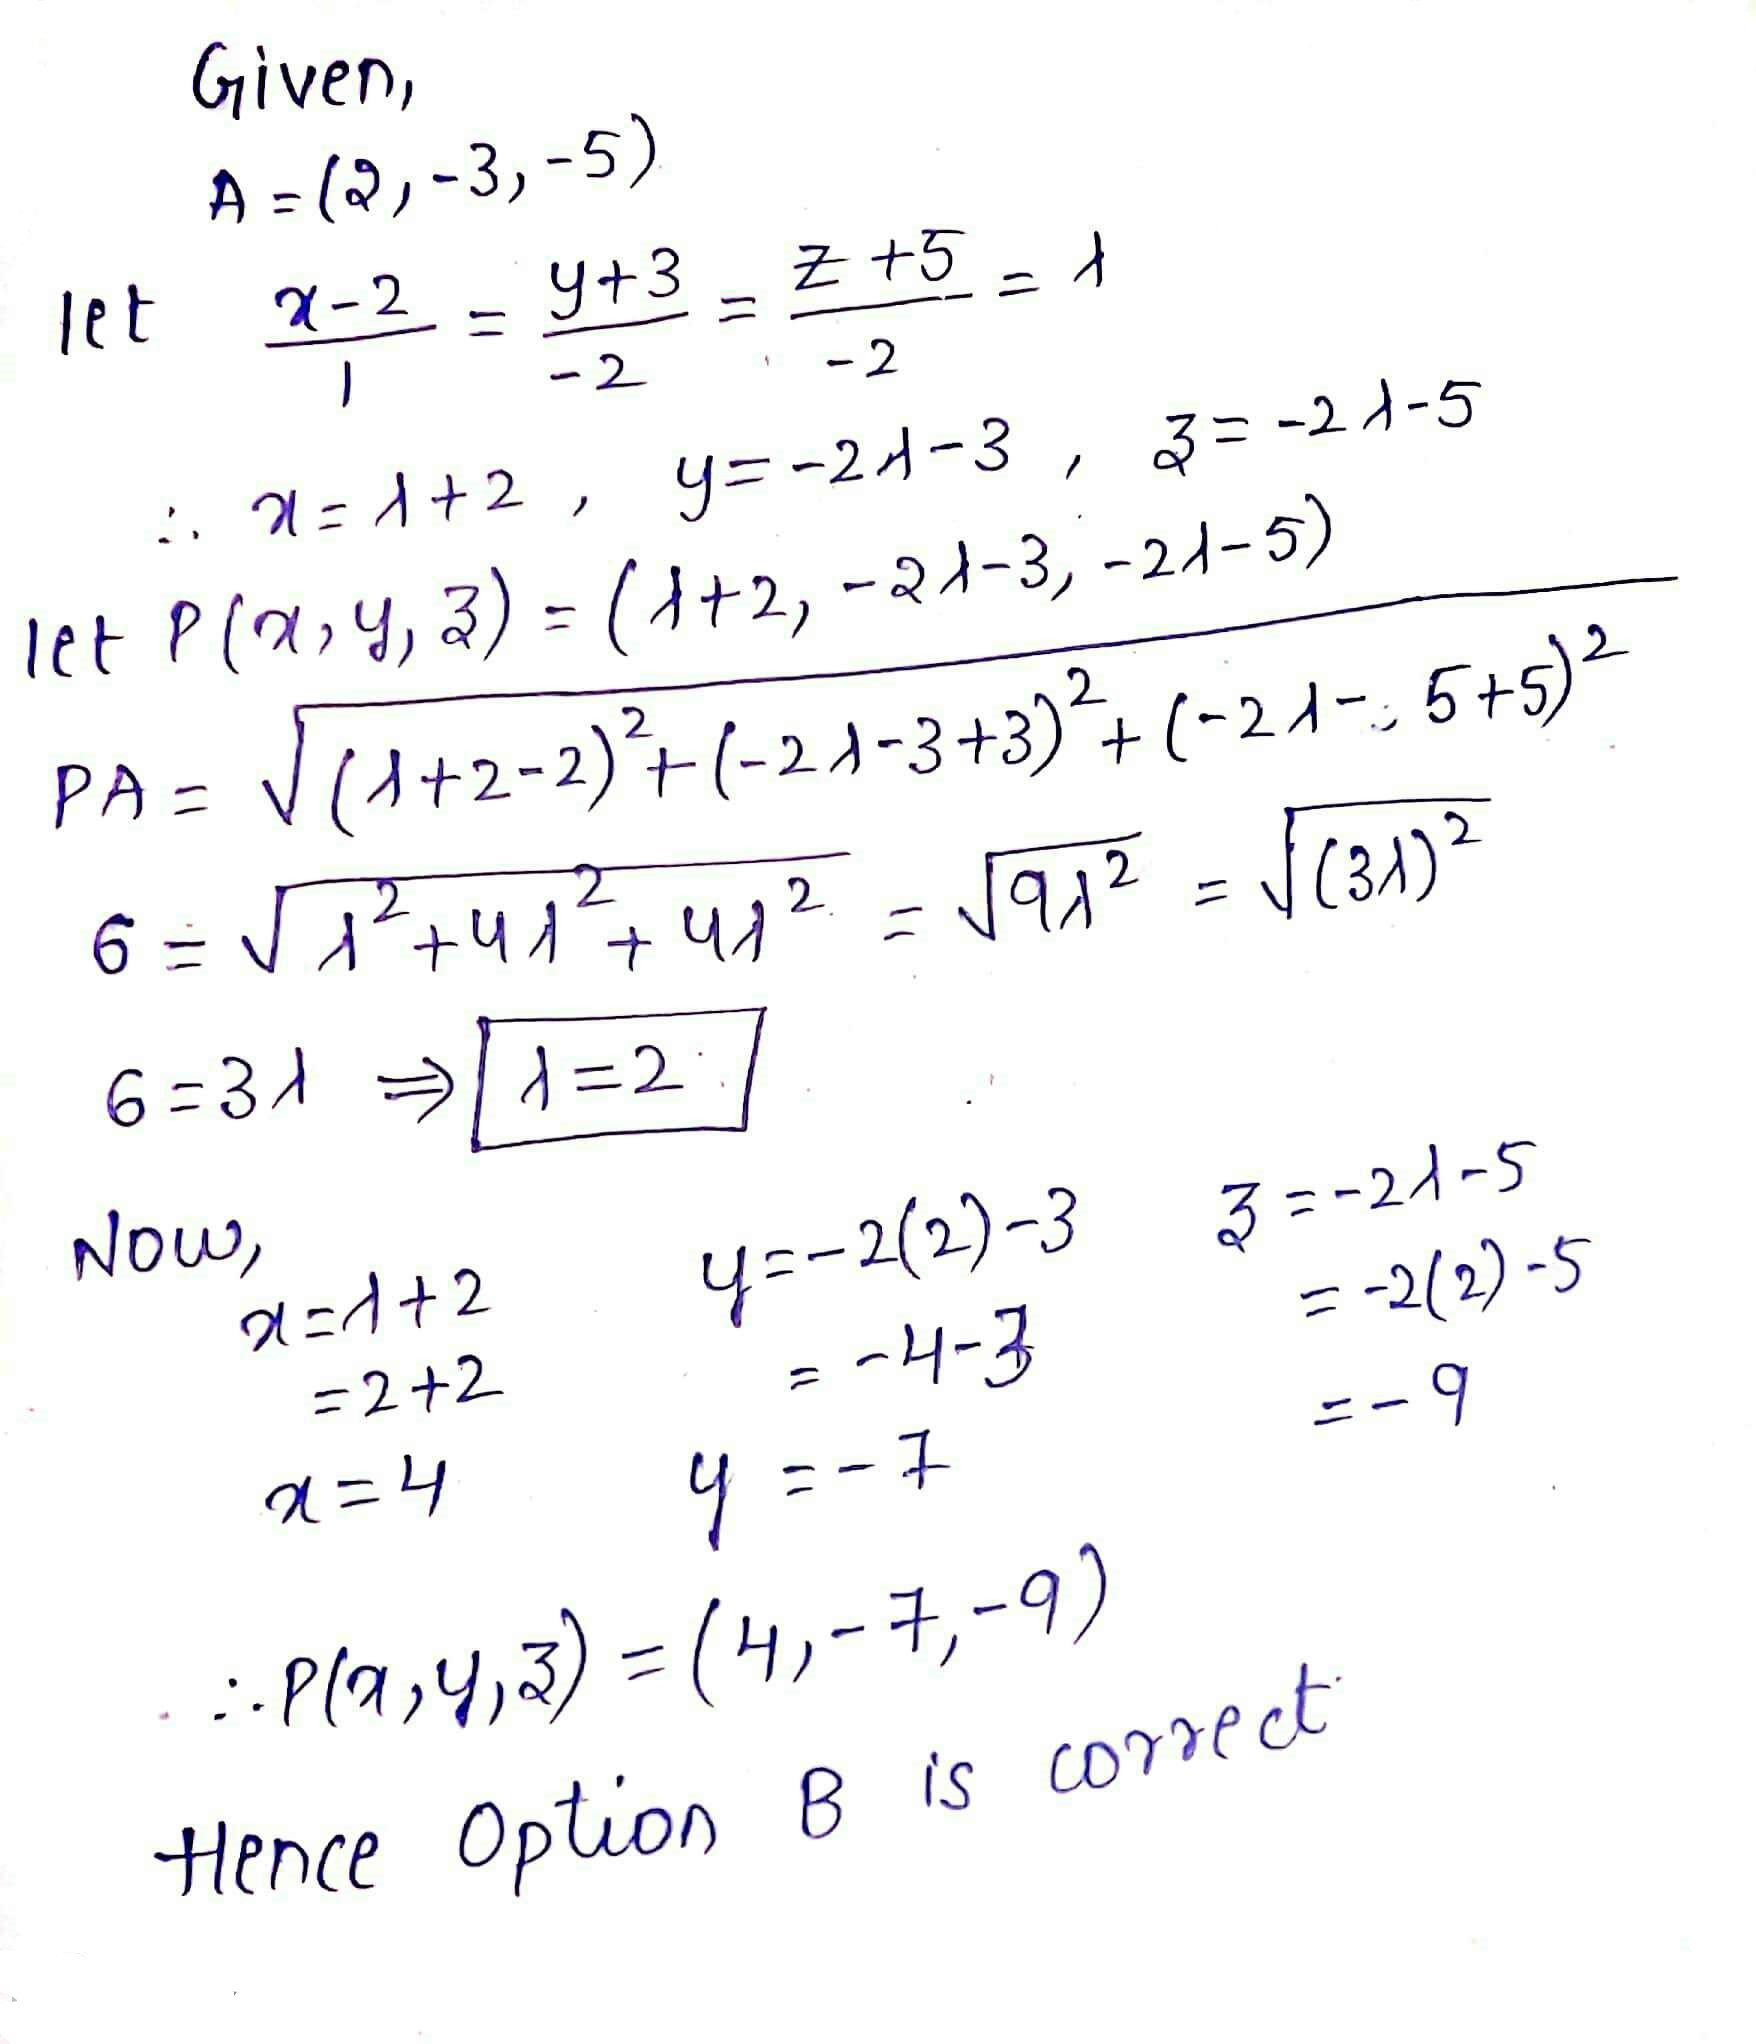 Given,
A = (2, -3, -5)
let x-2/1 = y+3/-2 = z+5/-2 = λ
∴ x = λ+2 , y = -2λ-3 , z = -2λ-5
let P(x, y, z) = (λ+2, -2λ-3, -2λ-5)
PA = √((λ+2-2)² + (-2λ-3+3)² + (-2λ-5+5)²)
6 = √(λ²+4λ²+4λ²) = √(9λ²) = √((3λ)²)
6 = 3λ ⇒ λ = 2
Now,
x = λ+2 y = -2(2)-3 z = -2λ-5
= 2+2 = -4-3 = -2(2)-5
x = 4 y = -7 = -9
∴ P(x, y, z) = (4, -7, -9)
Hence Option B is correct